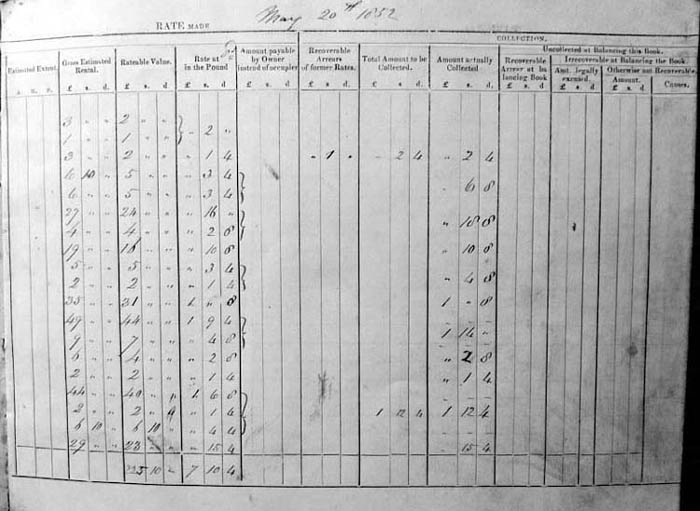 RATE MADE May 20th 1852
COLLECTION.
Estimated Extent. Gross Estimated Rental. Rateable Value. Rate at in the Pound Amount payable by Owner instead of occupier Recoverable Arrears of former Rates. Total Amount to be Collected. Amount actually Collected
Uncollected at Balancing this Book.
Recoverable Arrear at ba lancing Book
Irrecoverable at Balancing the Book.
Amt. legally excused. Otherwise not Recoverable
Amount. Causes.
A. R. P. £ s. d. £ s. d. £ s. d £ s. d £ s. d £ s. d £ s. d £ s. d £ s d £ s. d
3 " " 2 " "
1 " " 1 " " - 2 "
3 " " 2 " " " 1 4 " 1 " - 2 4 " 2 4
6 10 " 5 " " " 3 4
6 " " 5 " " " 3 4 " 6 8
27 " " 24 " " " 16 "
4 " " 4 " " " 2 8 " 18 8
19 " " 16 " " " 10 8 " 10 8
5 " " 5 " " " 3 4
2 " " 2 " " " 1 4 " 4 8
35 " " 31 " " 1 " 8 1 " 8
49 " " 44 " " 1 9 4
9 " " 7 " " " 4 8 1 14 "
6 " " 4 " " " 2 8 " 2 8
2 " " 2 " " " 1 4 " 1 4
44 " " 40 " " 1 6 8
2 " " 2 " " " 1 4 1 12 4 1 12 4
6 10 " 6 10 " " 4 4
29 " " 23 " " " 15 4 " 15 4
225 10 " 7 10 4